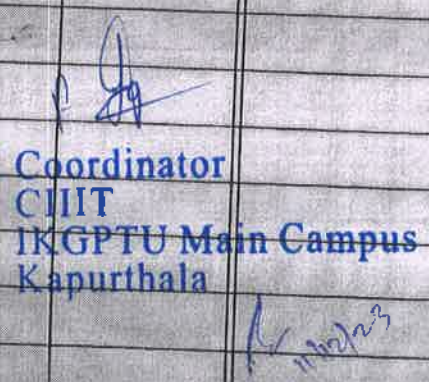 Coordinator
CIIIT
IKGPTU Main Campus
Kapurthala
11/12/23